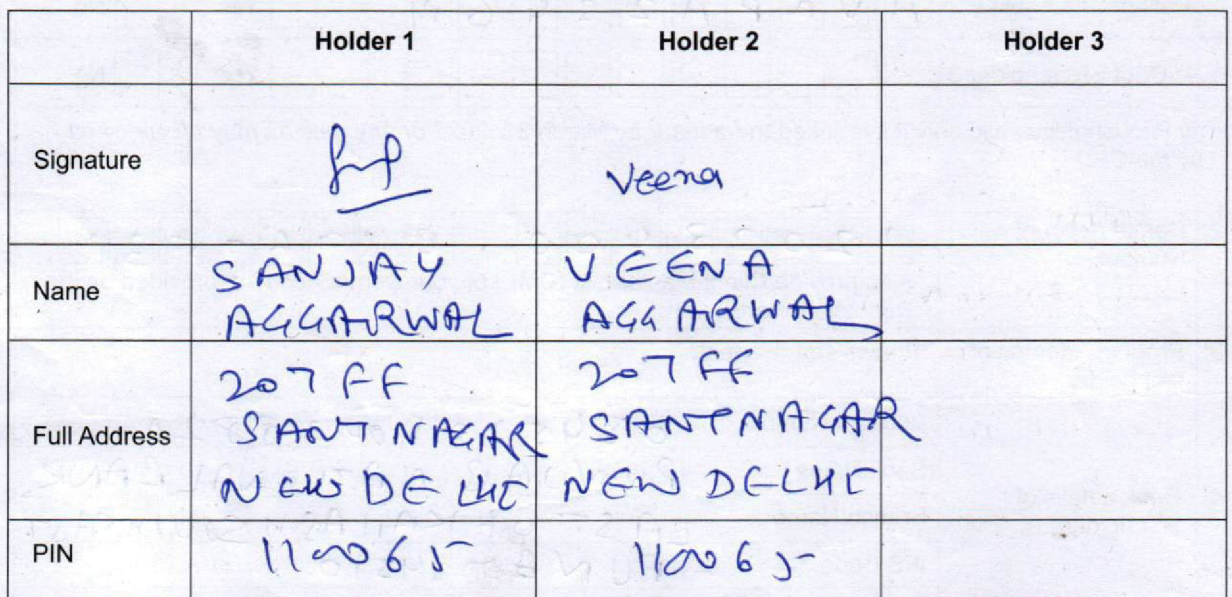 Holder 1 Holder 2 Holder 3
Signature Veena
Name SANJAY AGGARWAL VEENA AGGARWAL
Full Address 207 FF SANT NAGAR NEW DELHI 207 FF SANT NAGAR NEW DELHI
PIN 110065 110065